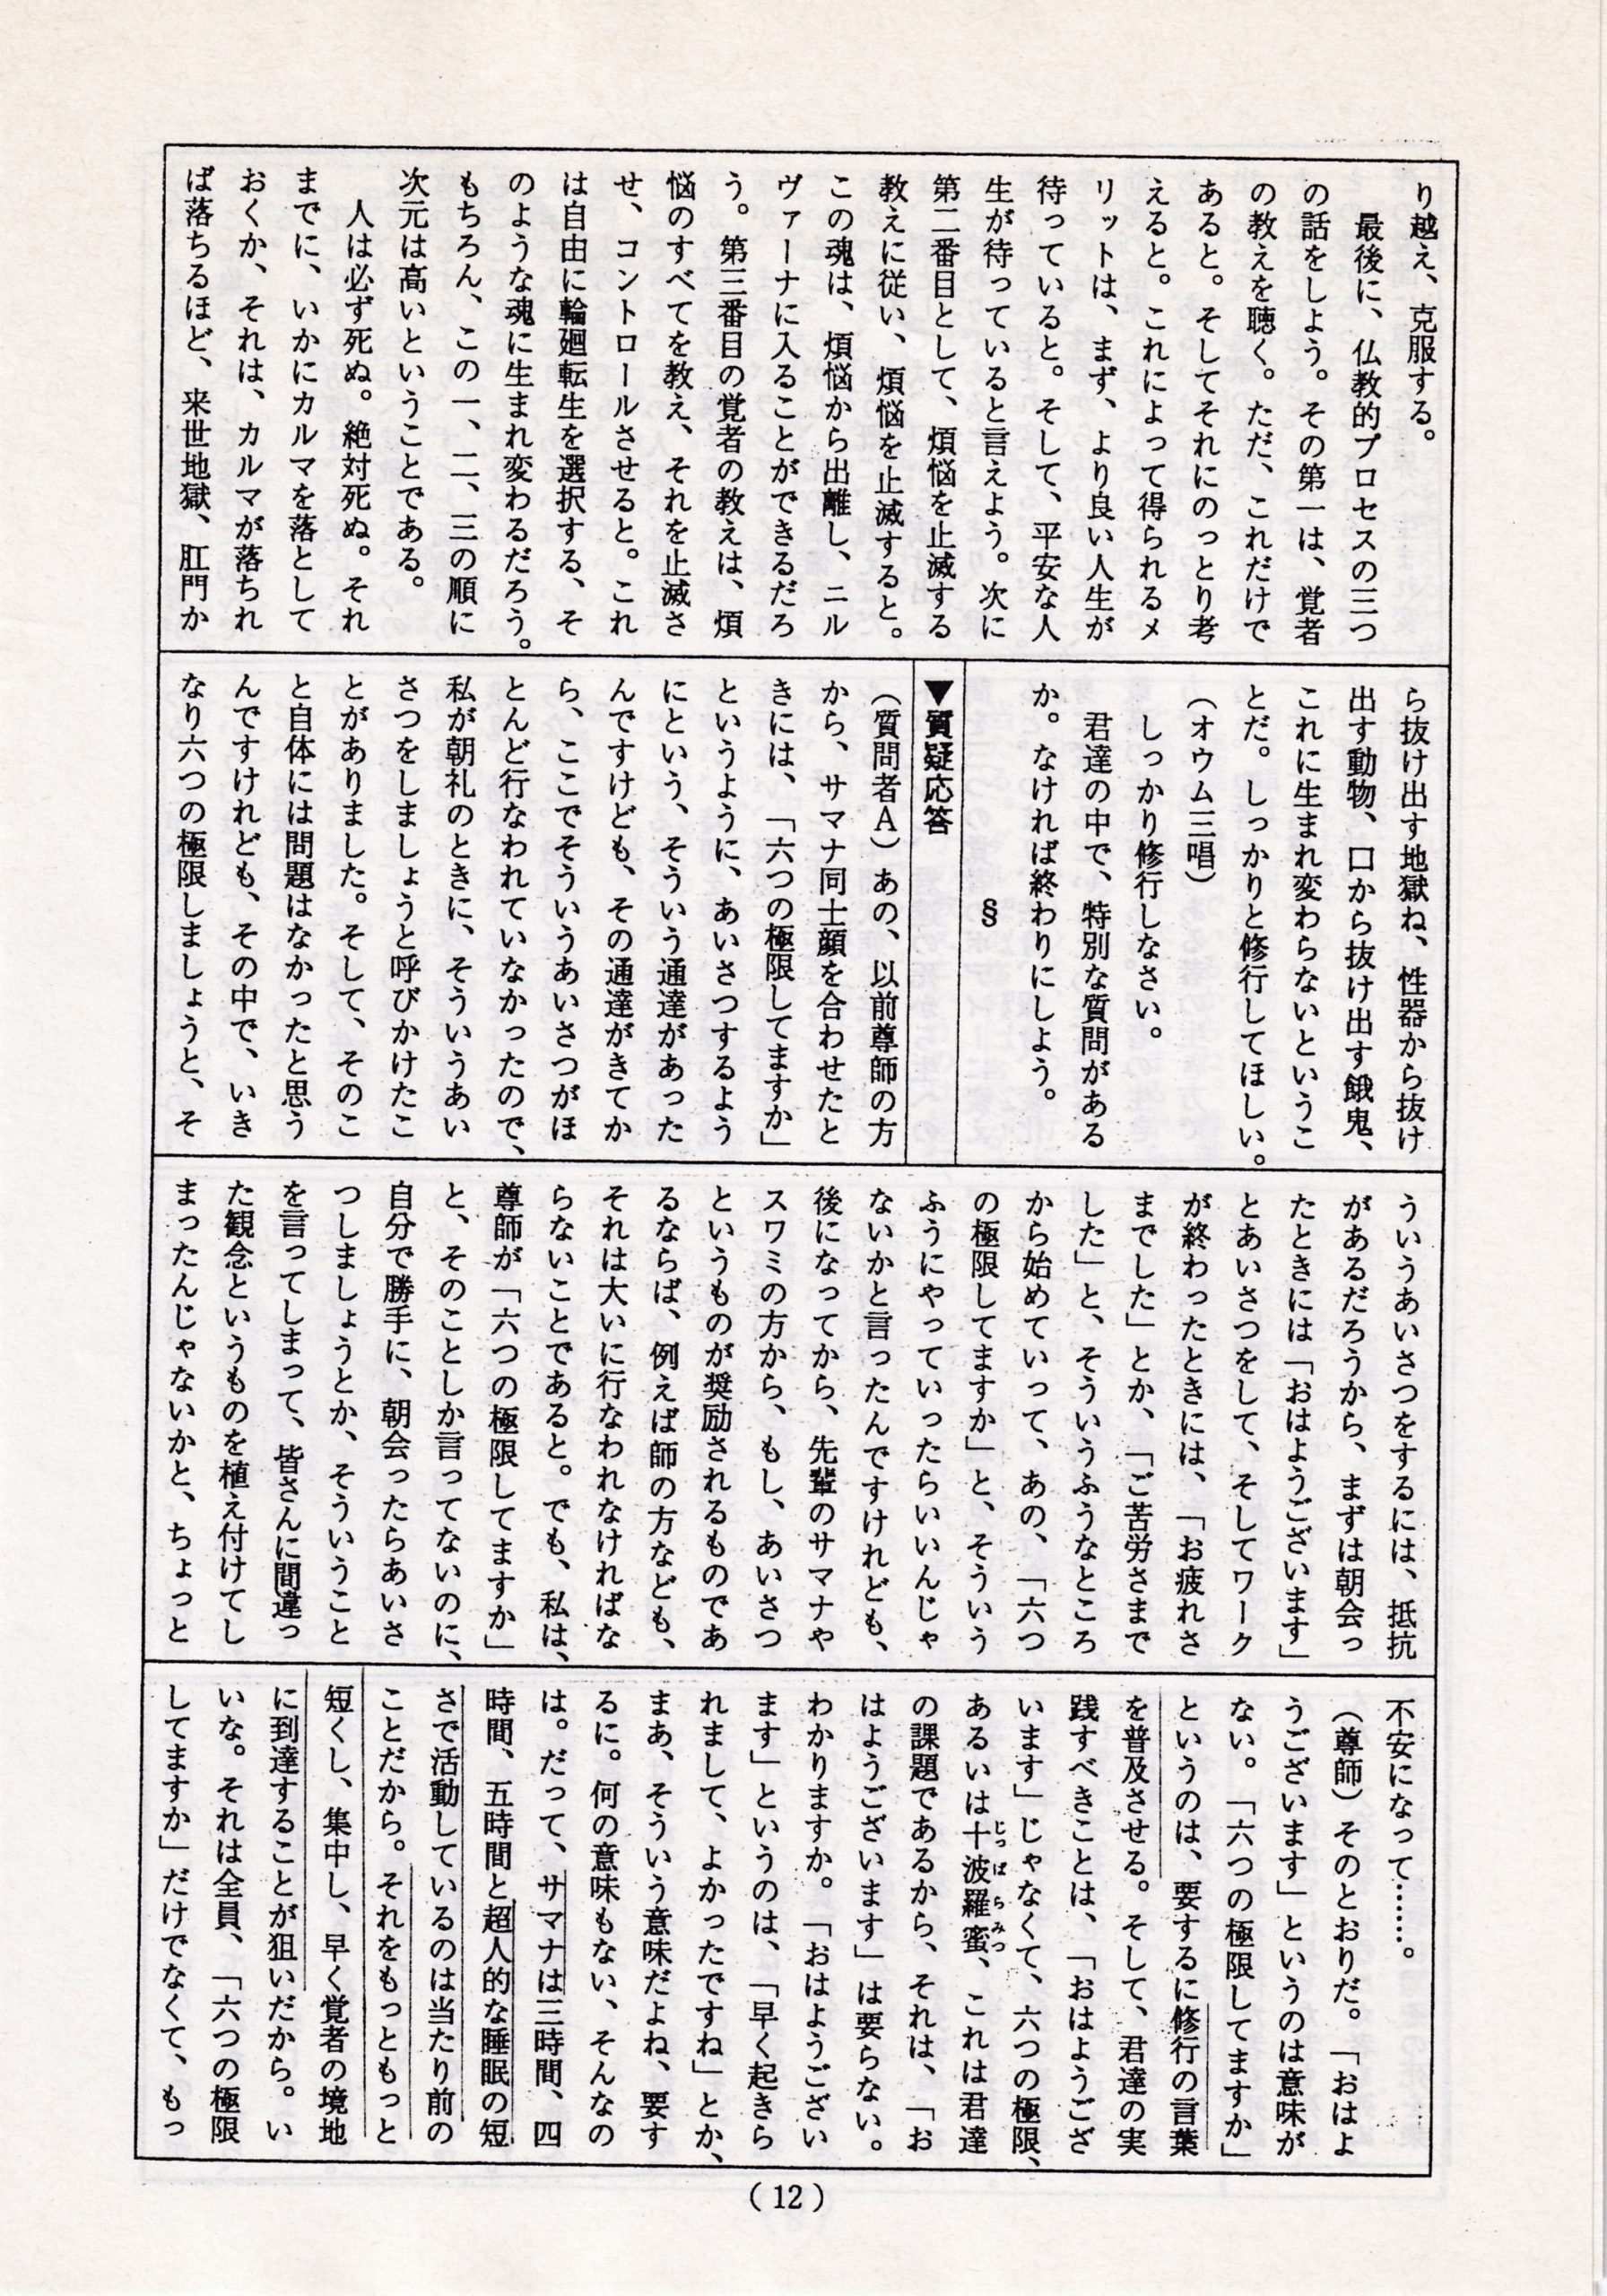 り越え、克服する。
　最後に、仏教的プロセスの三つ
の話をしよう。その第一は、覚者
の教えを聴く。ただ、これだけで
あると。そしてそれにのっとり考
えると。これによって得られるメ
リットは、まず、より良い人生が
待っていると。そして、平安な人
生が待っていると言えよう。次に
第二番目として、煩悩を止滅する
教えに従い、煩悩を止滅すると。
この魂は、煩悩から出離し、ニル
ヴァーナに入ることができるだろ
う。第三番目の覚者の教えは、煩
悩のすべてを教え、それを止滅さ
せ、コントロールさせると。これ
は自由に輪廻転生を選択する、そ
のような魂に生まれ変わるだろう。
もちろん、この一、二、三の順に
次元は高いということである。
　人は必ず死ぬ。絶対死ぬ。それ
までに、いかにカルマを落として
おくか、それは、カルマが落ちれ
ば落ちるほど、来世地獄、肛門か
ら抜け出す地獄ね、性器から抜け
出す動物、口から抜け出す餓鬼、
これに生まれ変わらないというこ
とだ。しっかりと修行してほしい。
（オウム三唱）
　しっかり修行しなさい。
　君達の中で、特別な質問がある
か。なければ終わりにしよう。
§
▼質疑応答
（質問者Ａ）あの、以前尊師の方
から、サマナ同士顔を合わせたと
きには、「六つの極限してますか」
というように、あいさつするよう
にという、そういう通達があった
んですけども、その通達がきてか
ら、ここでそういうあいさつがほ
とんど行なわれていなかったので、
私が朝礼のときに、そういうあい
さつをしましょうと呼びかけたこ
とがありました。そして、そのこ
と自体には問題はなかったと思う
んですけれども、その中で、いき
なり六つの極限しましょうと、そ
ういうあいさつをするには、抵抗
があるだろうから、まずは朝会っ
たときには「おはようございます」
とあいさつをして、そしてワーク
が終わったときには、「お疲れさ
までした」とか、「ご苦労さまで
した」と、そういうふうなところ
から始めていって、あの、「六つ
の極限してますか」と、そういう
ふうにやっていったらいいんじゃ
ないかと言ったんですけれども、
後になってから、先輩のサマナや
スワミの方から、もし、あいさつ
というものが奨励されるものであ
るならば、例えば師の方なども、
それは大いに行なわれなければな
らないことであると。でも、私は、
尊師が「六つの極限してますか」
と、そのことしか言ってないのに、
自分で勝手に、朝会ったらあいさ
つしましょうとか、そういうこと
を言ってしまって、皆さんに間違っ
た観念というものを植え付けてし
まったんじゃないかと、ちょっと
不安になって……。
（尊師）そのとおりだ。「おはよ
うございます」というのは意味が
ない。「六つの極限してますか」
というのは、要するに修行の言葉
を普及させる。そして、君達の実
践すべきことは、「おはようござ
います」じゃなくて、六つの極限、
あるいは十波羅蜜、これは君達
じっぱらみつ
の課題であるから、それは、「お
はようございます」は要らない。
わかりますか。「おはようござい
ます」というのは、「早く起きら
れまして、よかったですね」とか、
まあ、そういう意味だよね、要す
るに。何の意味もない、そんなの
は。だって、サマナは三時間、四
時間、五時間と超人的な睡眠の短
さで活動しているのは当たり前の
ことだから。それをもっともっと
短くし、集中し、早く覚者の境地
に到達することが狙いだから。い
いな。それは全員、「六つの極限
してますか」だけでなくて、もっ
（12）